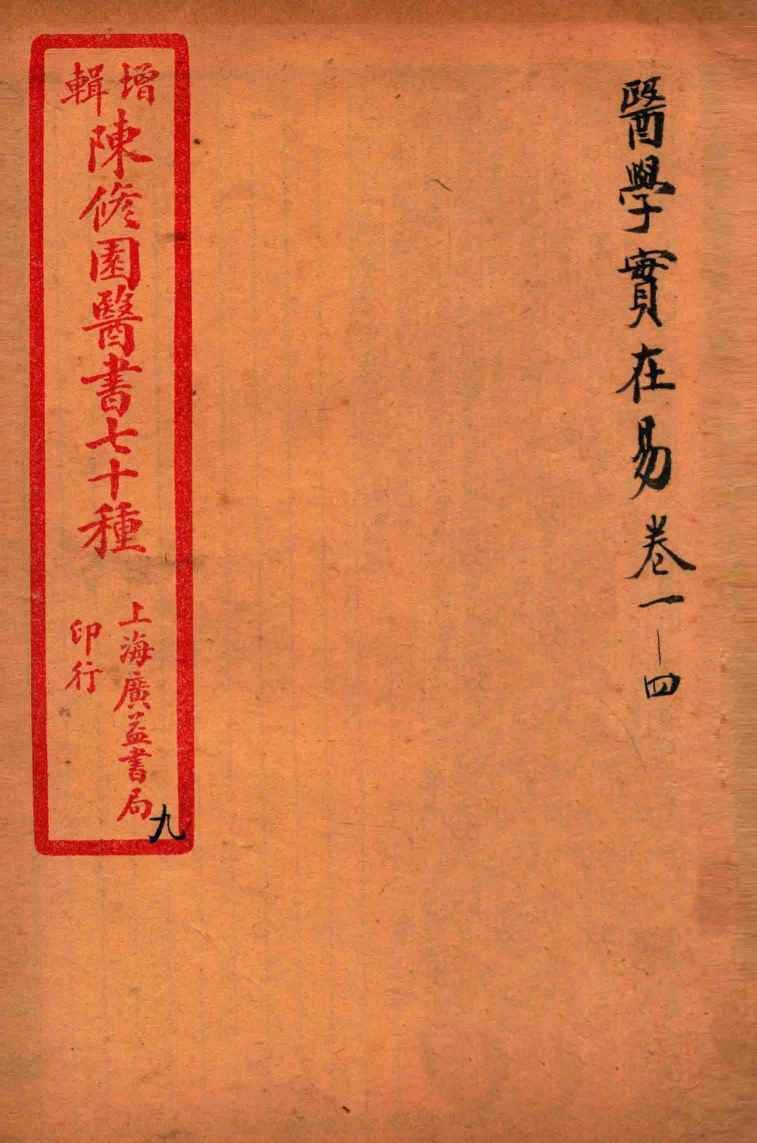 醫學實在易卷一—四
增輯
陳修園醫書七十種
上海廣益書局
印行
九